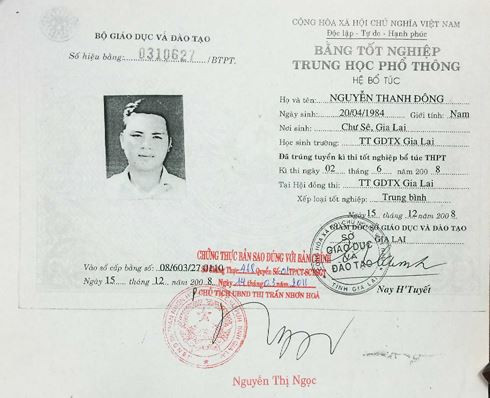 BỘ GIÁO DỤC VÀ ĐÀO TẠO
Số hiệu bằng: 0310627/BTPT.
CỘNG HÒA XÃ HỘI CHỦ NGHĨA VIỆT NAM
Độc lập - Tự do - Hạnh phúc
BẰNG TỐT NGHIỆP
TRUNG HỌC PHỔ THÔNG
HỆ BỔ TÚC
Họ và tên: NGUYỄN THANH ĐÔNG
Ngày sinh: 20/04/1984 Giới tính: Nam
Nơi sinh: Chư Sê, Gia Lai
Học sinh trường: TT GDTX Gia Lai
Đã trúng tuyển kì thi tốt nghiệp bổ túc THPT
Kì thi ngày 02 tháng 6 năm 2008
Tại Hội đồng thi: TT GDTX Gia Lai
Xếp loại tốt nghiệp: Trung bình
Ngày 15 tháng 12 năm 2008
GIÁM ĐỐC SỞ GIÁO DỤC VÀ ĐÀO TẠO
GIA LAI
SỞ
GIÁO DỤC
VÀ
ĐÀO TẠO
TỈNH GIA LAI
Nay H'Tuyết
CHỨNG THỰC BẢN SAO ĐÚNG VỚI BẢN CHÍNH
Vào sổ cấp bằng số: 08/603/27
Ngày 15 tháng 12 năm 2008
CHỦ TỊCH UBND THỊ TRẤN NHƠN HOÀ
Nguyễn Thị Ngọc